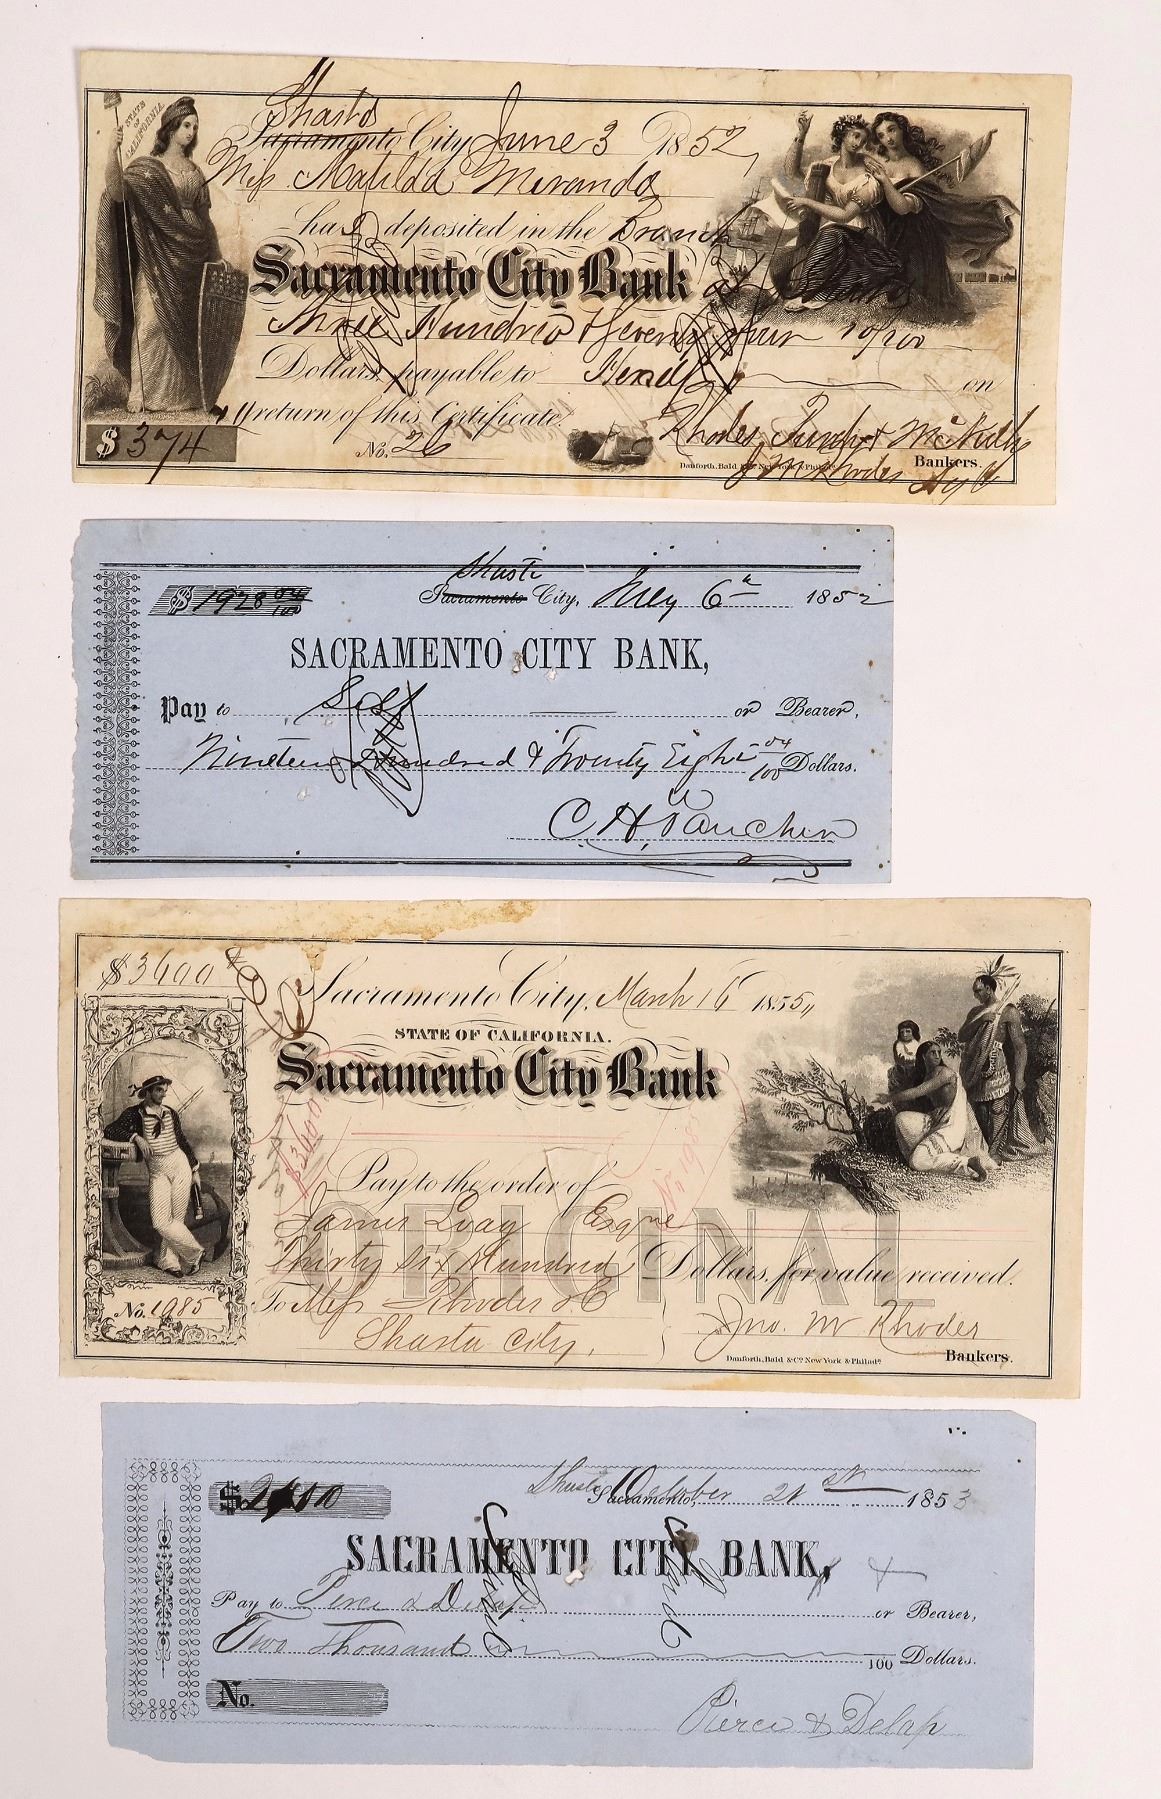 STATE OF CALIFORNIA
Shasta
Sacramento City June 3 1852,
Miss Matilda Miranda
has deposited in the Branch
Sacramento City Bank at Shasta
Three Hundred & Seventy four 10/100
Dollars, payable to Herself on
return of this Certificate.
$374
No. 26
Rhodes, Purdy & McNulty
Danforth, Bald & Co. New York & Philada.
Bankers.
J M Rhodes
$1928 04/100
Shasta
Sacramento City, May 6th 1852
SACRAMENTO CITY BANK,
Pay to Self or Bearer,
Nineteen Hundred & Twenty Eight 04/100 Dollars.
C. H.
$3600
Sacramento City, March 16 1855,,
STATE OF CALIFORNIA.
Sacramento City Bank
$3600
No 1985
Pay to the order of
James Loag Esqre
ORIGINAL
Thirty six Hundred Dollars, for value received.
No. 1985
To Mess Rhodes & Co
Shasta City.
Jno. M Rhodes
Danforth, Bald & Co. New York & Philada.
Bankers.
Shasta
Sacramento, October 21st 1853
SACRAMENTO CITY BANK,
Pay to Pierce & Delap or Bearer,
Two Thousand 100 Dollars.
No.
Pierce & Delap